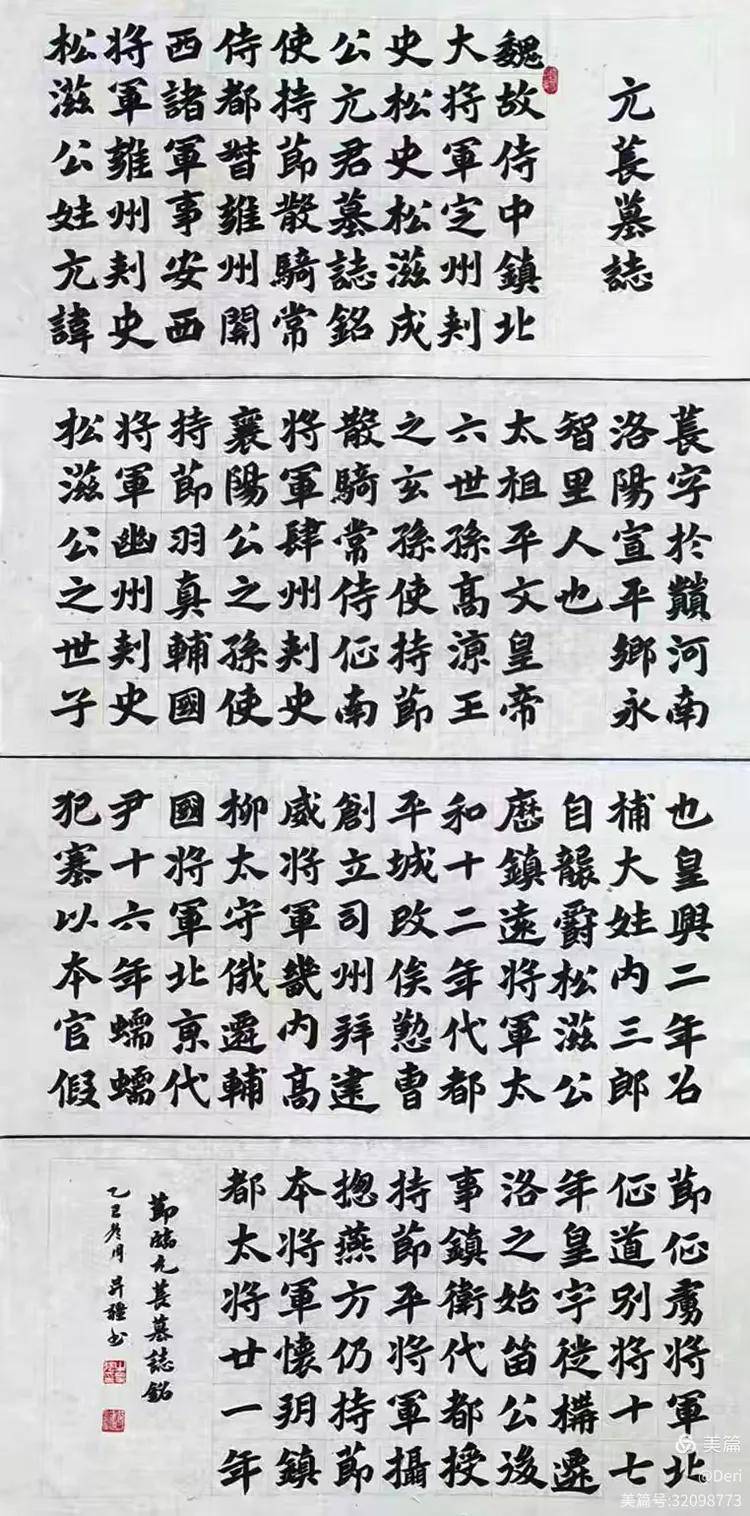 元萇墓誌
魏故侍中鎮北
大將軍定州刾
史松史松滋成
公元君墓誌銘
使持節散騎常
侍都督雍州關
西諸軍事安西
將軍雍州刾史
松滋公姓元諱
萇字於巔河南
洛陽宣平鄉永
智里人也
太祖平文皇帝
六世孫高涼王
之玄孫使持節
散騎常侍征南
將軍肆州刾史
襄陽公之孫使
持節羽真輔國
將軍幽州刾史
松滋公之世子
也皇興二年召
補大姓內三郎
自襲爵松滋公
歷鎮遠將軍太
和十二年代都
平城改俟懃曹
創立司州拜建
威將軍畿內高
柳太守俄遷輔
國將軍北京代
尹十六年蠕蠕
犯塞以本官假
節征虜將軍北
征道別將十七
年皇宇徙構遷
洛之始留公後
事鎮衛代都授
持節平將軍攝
摠燕方仍持節
本將軍懷朔鎮
都太將廿一年
節臨元萇墓誌銘
乙巳冬月昇書
美篇
@Deri
美篇号:32098773